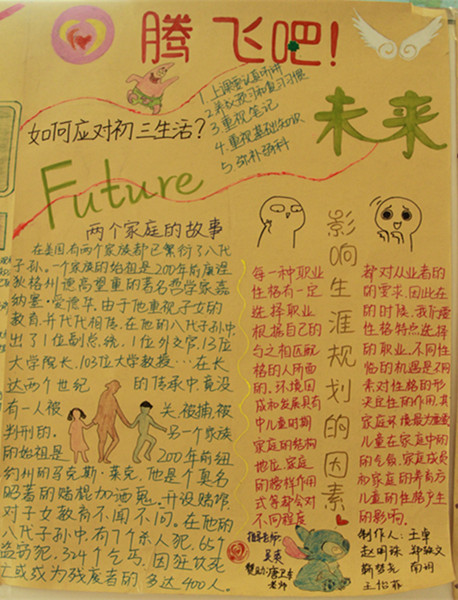 腾飞吧!
如何应对初三生活?
1、上课要认真听讲
2、养成预习和复习习惯
3、重视笔记
4、重视基础知识
5、弥补弱科
未来
Future
两个家庭的故事
在美国,有两个家族都已繁衍了八代
子孙。一个家族的始祖是200年前康涅
狄格州德高望重的著名哲学家嘉
纳塞·爱德华,由于他重视子女的
教育,并代代相传,在他的八代子孙中
出了1位副总统,1位外交官,13位
大学院长,103位大学教授……在长
达两个世纪的传承中竟没
有一人被关、被捕、被
判刑的。另一个家族
的始祖是200年前纽
约州的马克斯·莱克,他是个臭名
昭著的赌棍加酒鬼,开设赌馆,
对子女教育不闻不问。在他的
八代子孙中,有7个杀人犯,65个
盗窃犯,324个乞丐,因狂饮死
亡或成为残废者的多达400人。
影响生涯规划的因素
每一种职业都对从业者的
性格有一定的要求,因此在
选择职业的时候,我们要
根据自己的性格特点选择
与之相匹配的职业。不同性
格的人所面临的机遇是不同
的。环境因素对性格的形
成和发展具有决定性的作用,其
中儿童时期家庭环境最为重要
家庭的结构儿童在家庭中的
地位,家庭的气氛,家庭成员
的榜样作用和家庭的养育方
式等都会对儿童的性格产生
不同程度的影响。
指导老师:
吴英
老师
制作人:王卓
赵明珠
南玥
王怡菲